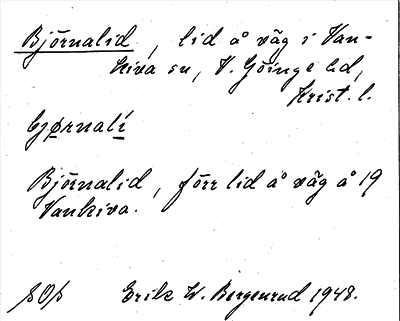 Björnalid, lid å väg i Van-
kiva sn, V. Göinge hd,
Krist. l.
bjørnalí
Björnalid, förr lid å väg å 19
Vankiva.
Erik W. Bergenrud 1948.